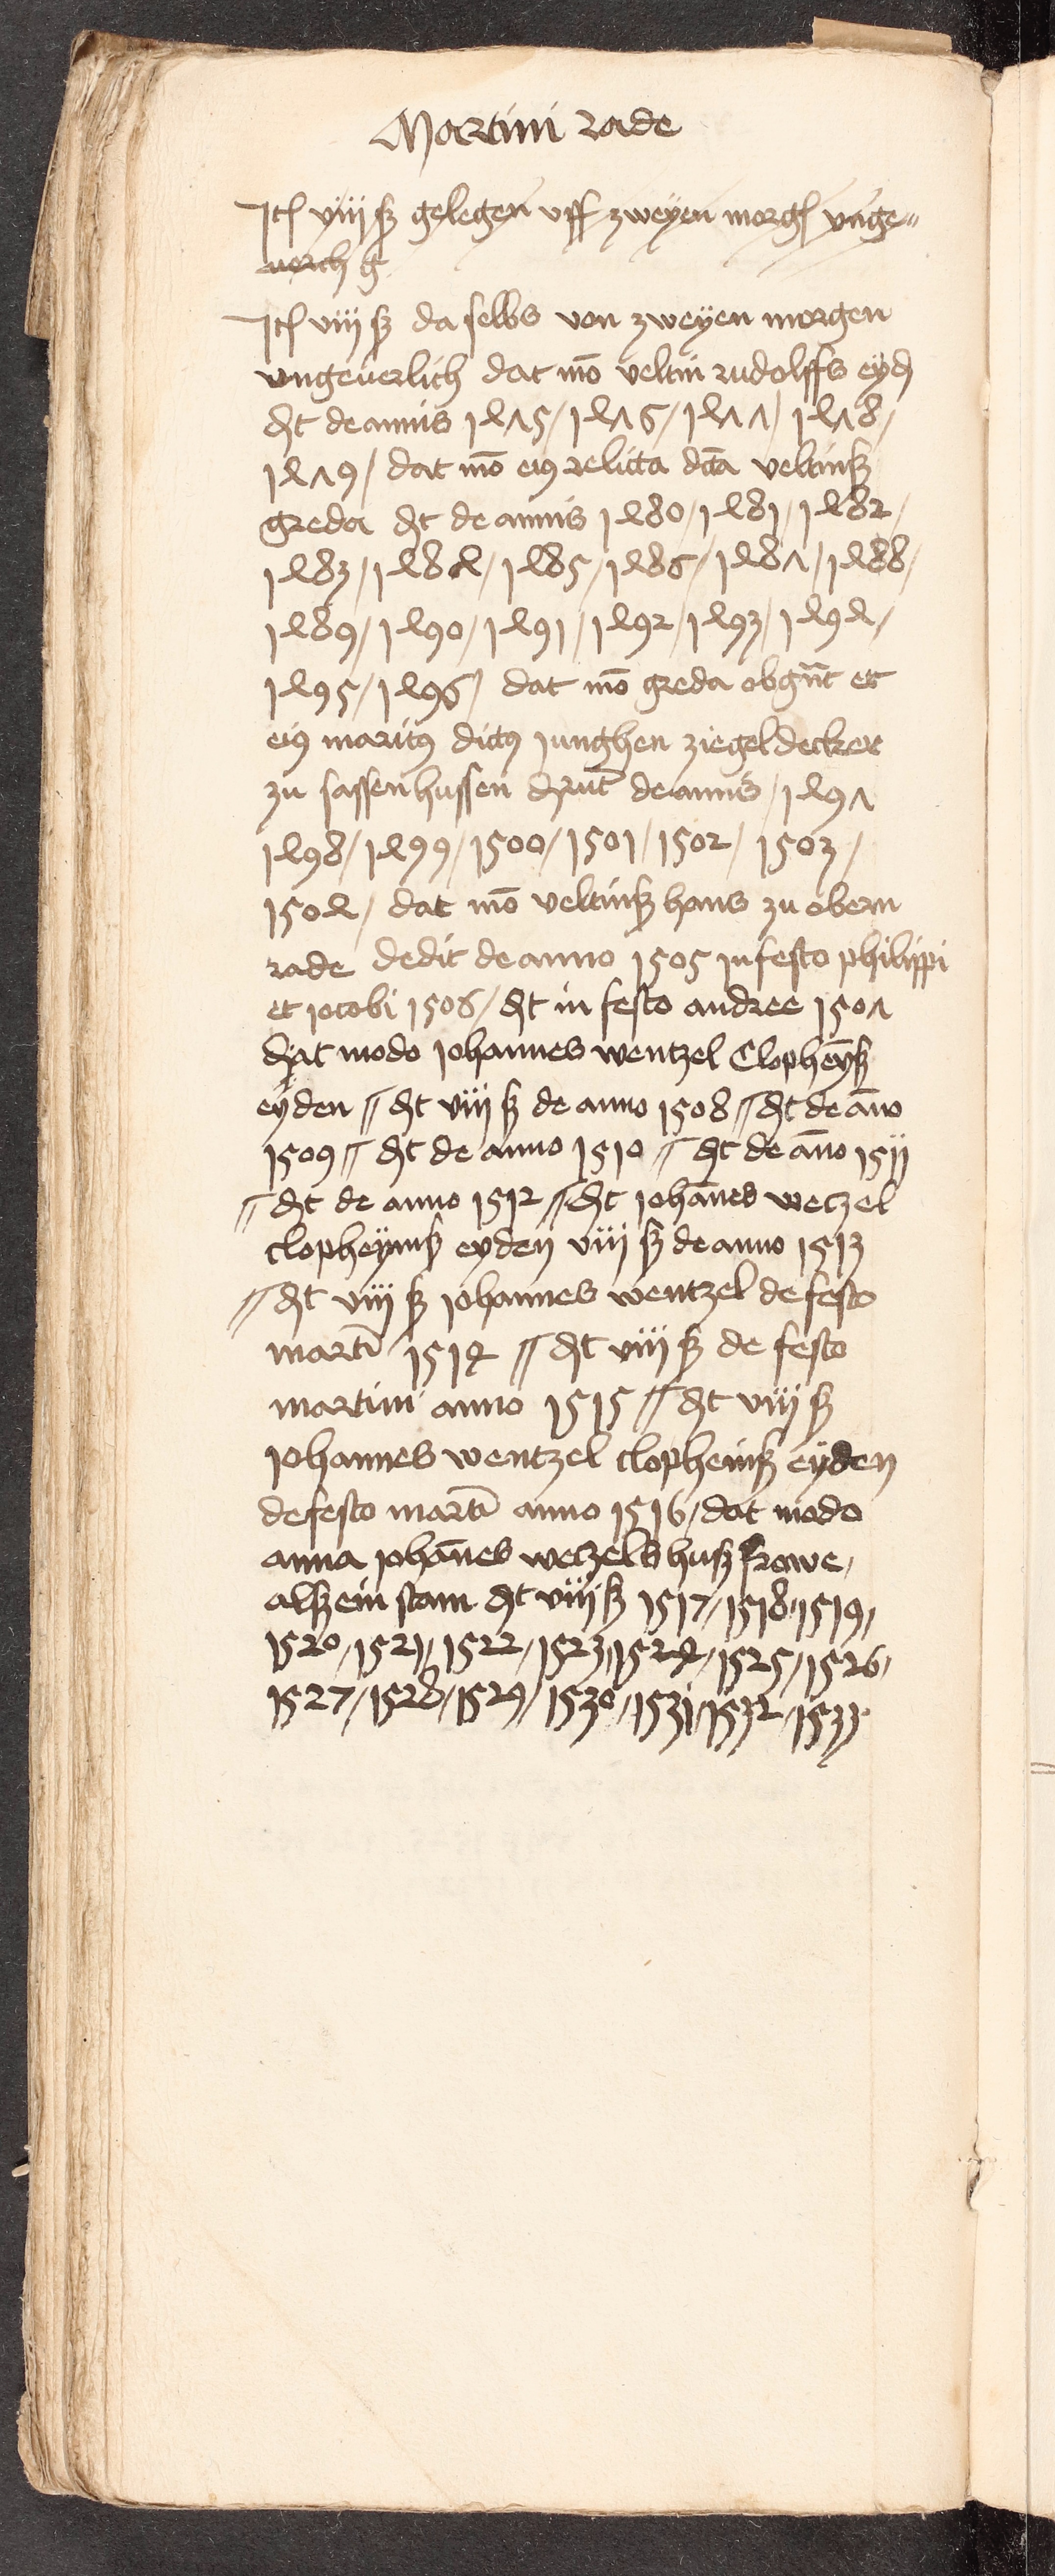 Martini rade
Jt viij ß gelegen vff zweyen morg vnge=
uerlich g
Jt viij ß da selbs von zweyen morgen
vngeuerlich dat mō veltin rudolffs eyd
dt de annis 1475 / 1476 / 1477 / 1478 /
1479 / dat mō eiꝯ relicta dcā veltinß
greda dt de annis 1480 / 1481 / 1482 /
1483 / 1484 / 1485 / 1486 / 1487 / 1488 /
1489 / 1490 / 1491 / 1492 / 1493 / 1494 /
1495 / 1496 / dat mō greda obgn̄t et
eiꝯ maritꝯ dictꝯ junghen ziegeldecker
zu sassenhussen derūt de annis / 1497
1498 / 1499 / 1500 / 1501 / 1502 / 1503 /
1504 / dat mō veltinß hans zu obern
rade dedit de anno 1505 in festo philippi
et jacobi 1506 / dt in festo andree 1507
dat modo johannes wentzel Clophēyß
eyden // dt viij ß de anno 1508 // dt de āno
1509 // dt de anno 1510 // dt de āno 1511
// dt de anno 1512 // dt johānes wetzel
clopheynß eyden viij ß de anno 1513
// dt viij ß johannes wentzel de festo
martī 1514 // dt viij ß de festo
martini anno 1515 // dt viij ß
johannes wentzel clopheinß eyden
de festo martī anno 1516 / dat modo
anna johānes wetzels hußfrawe /
alß ein stam dt viij ß 1517 / 1518 / 1519 /
1520 / 1521 / 1522 / 1523 / 1524 / 1525 / 1526 /
1527 / 1528 / 1529 / 1530 / 1531 / 1532 / 1533